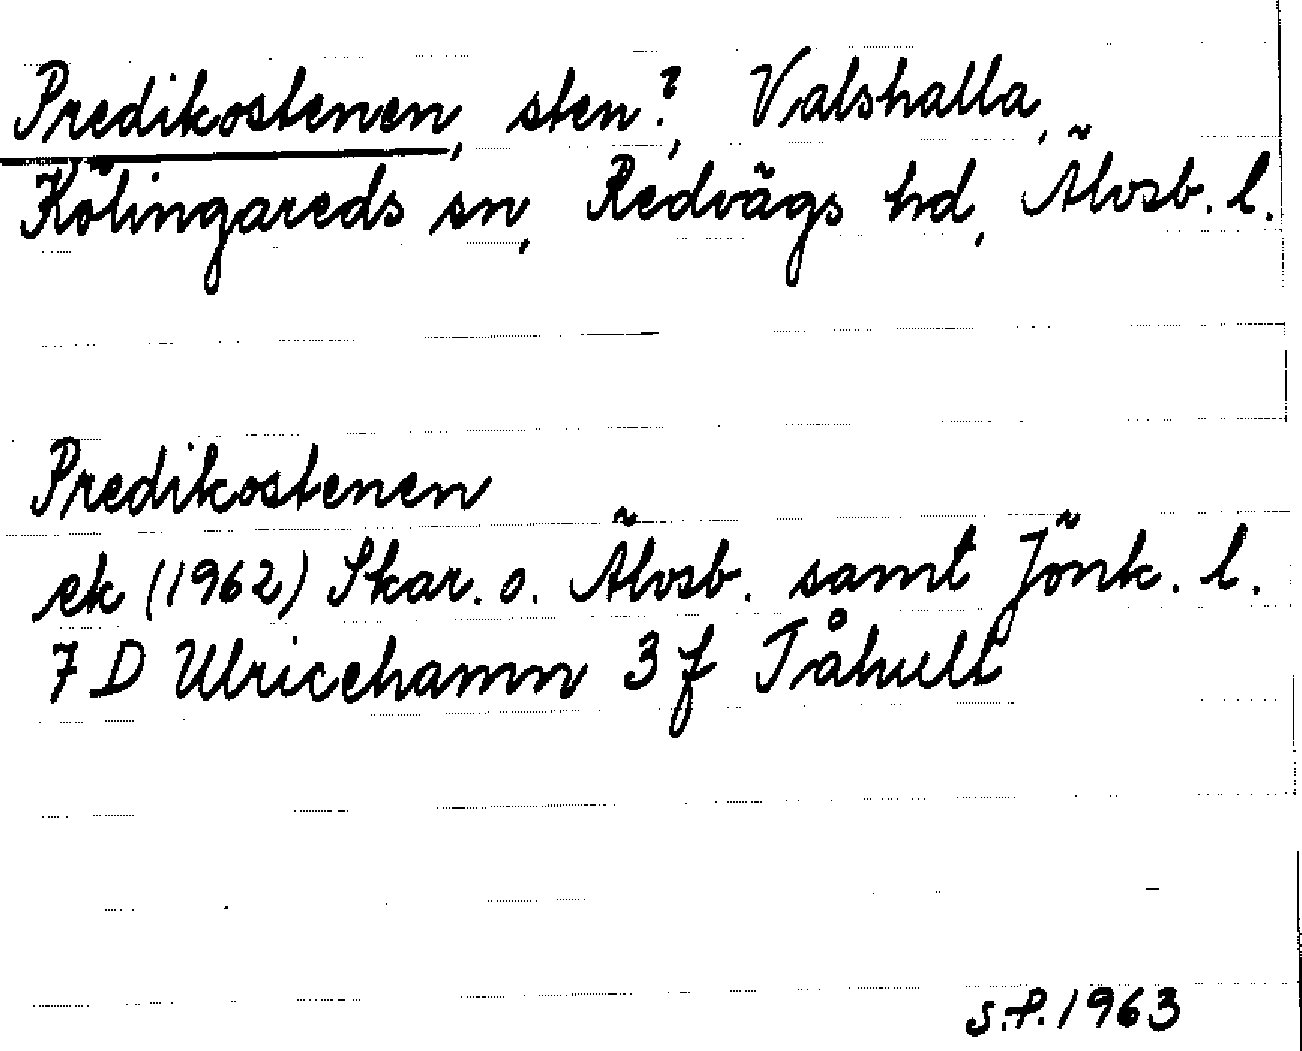 Predikostenen, sten?, Valshalla,
Kölingareds sn, Redvägs hd, Älvsb. l.
Predikostenen
ek (1962) Skar. o. Älvsb. samt Jönk. l.
7 D Ulricehamn 3 f Tåhult
S.F. 1963